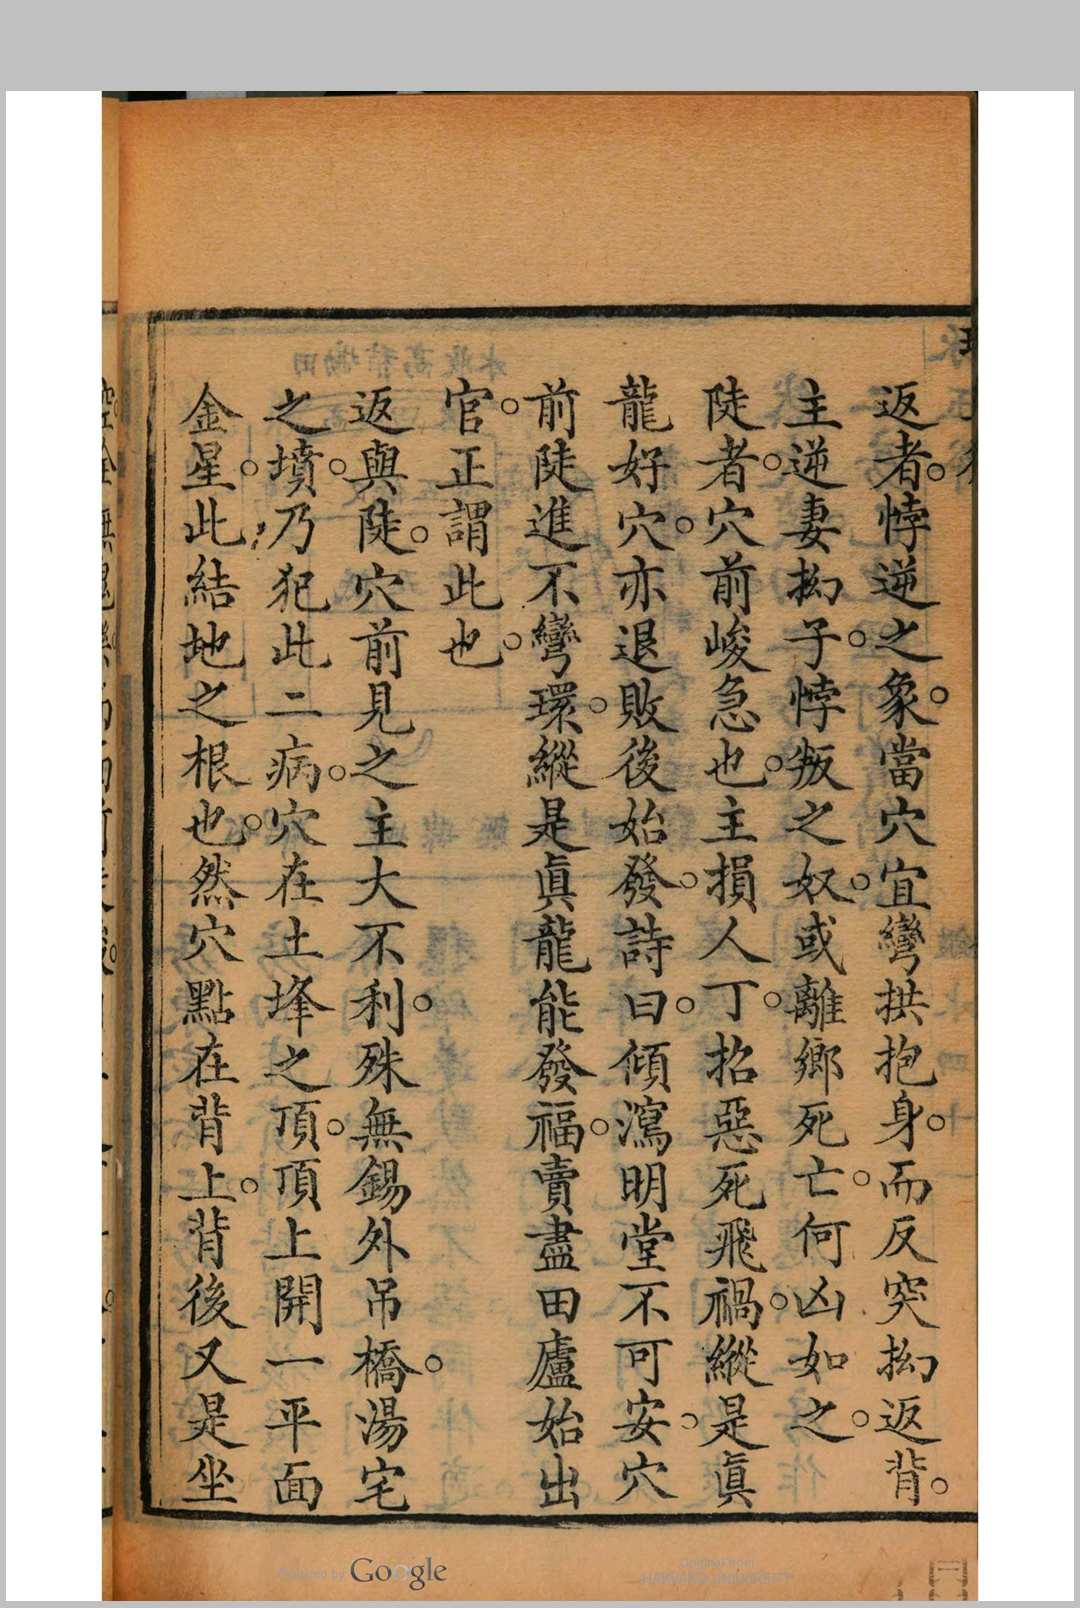 返者。悖逆之象。當穴宜彎拱抱身。而反突拗返背。
主逆妻拗子。悖叛之奴。或離鄉死亡。何凶如之。
陡者。穴前峻急也。主損人丁。招惡死飛禍。縱是眞
龍好穴。亦退敗後始發。詩曰。傾瀉明堂不可安。穴
前陡進不彎環。縱是眞龍能發福。賣盡田廬始出
官。正謂此也。
返與陡。穴前見之主大不利。殊無錫外吊橋。湯宅
之墳。乃犯此二病。穴在土埄之頂。頂上開一平面
金星。此結地之根也。然穴點在背上。背後又是坐
Google